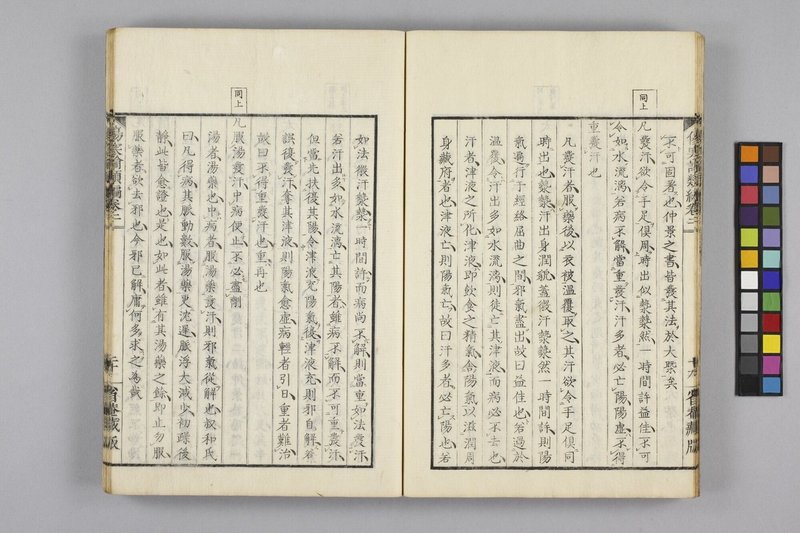 不可固著也仲景之書皆發其法於大槩矣
同上
凡發汗欲令手足俱周時出似漐漐然一時間許益佳不可
令如水流漓若病不解當重發汗汗多者必亡陽陽虛不得
重發汗也
凡發汗者服藥後以衣被溫覆取之其汗欲令手足俱同
時出也漐漐汗出身潤貌蓋微汗漐漐然一時間許則陽
氣遍行于經絡屈曲之間邪氣盡出故曰益佳也若過於
溫覆令汗出多如水流漓則徒亡其津液而病必不去也
汗者津液之所化津液即飲食之精氣含陽氣以滋潤周
身藏府者也津液亡則陽氣亡故曰汗多者必亡陽也若
十九 省菴藏版
如法微汗漐漐一時間許而病尚不解則當重如法發汗
若汗出多如水流漓亡其陽者雖病不解而不可重發汗
但當先扶復其陽令津液充陽氣復津液充則邪自解若
誤復發汗奪其津液則陽氣愈虛病輕者引日重者難治
故曰不得重發汗也重再也
同上
凡服湯發汗中病便止不必盡劑
湯者湯藥也中病者服湯藥發汗則邪氣從解也叔和氏
曰凡得病其脈動數服湯藥更沈遲脈浮大減少初躁後
靜此皆愈證也是也如此者雖有其湯藥之餘即止勿服
服藥者欲去邪也今邪已解庸何多求之為哉
卷二
二十 省菴藏版